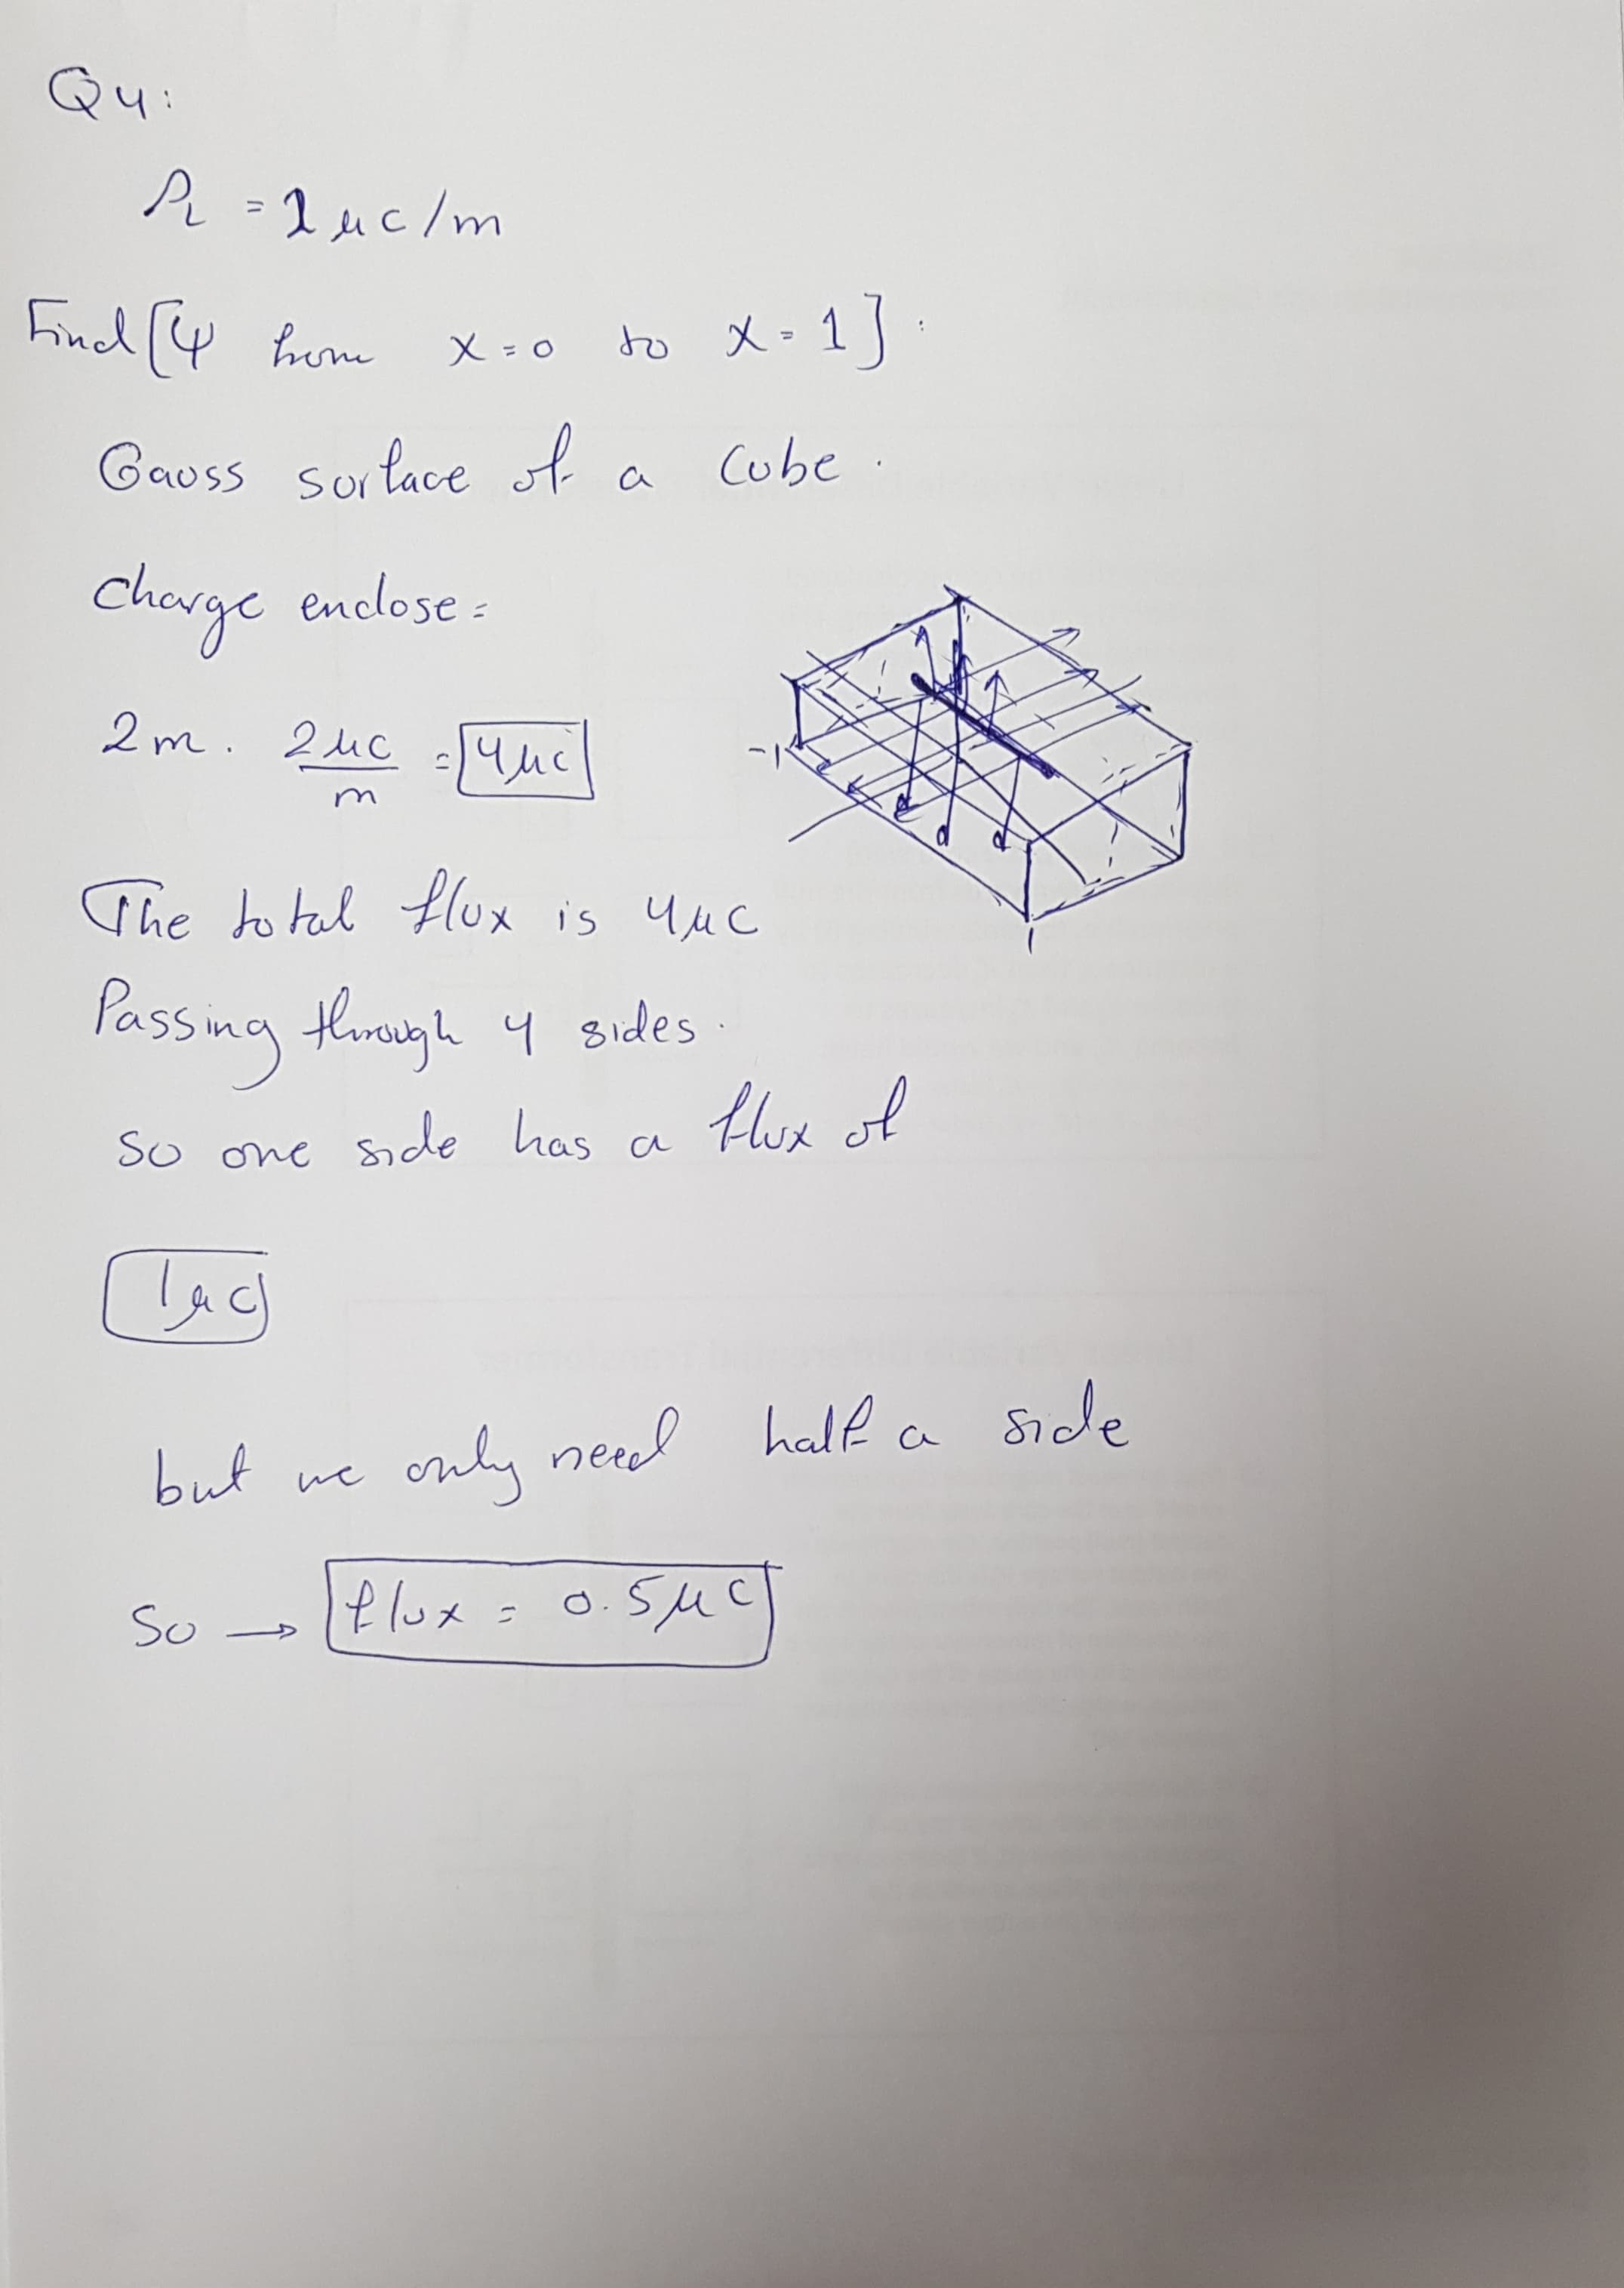 Q4:
ρL = 2 μc/m
Find [ψ from x=0 to x=1]:
Gauss surface of a cube.
Charge enclose =
2m. 2μc/m = 4μc
-1
1
The total flux is 4μc
Passing through 4 sides.
so one side has a flux of
1μc
but we only need half a side
So → flux = 0.5μc